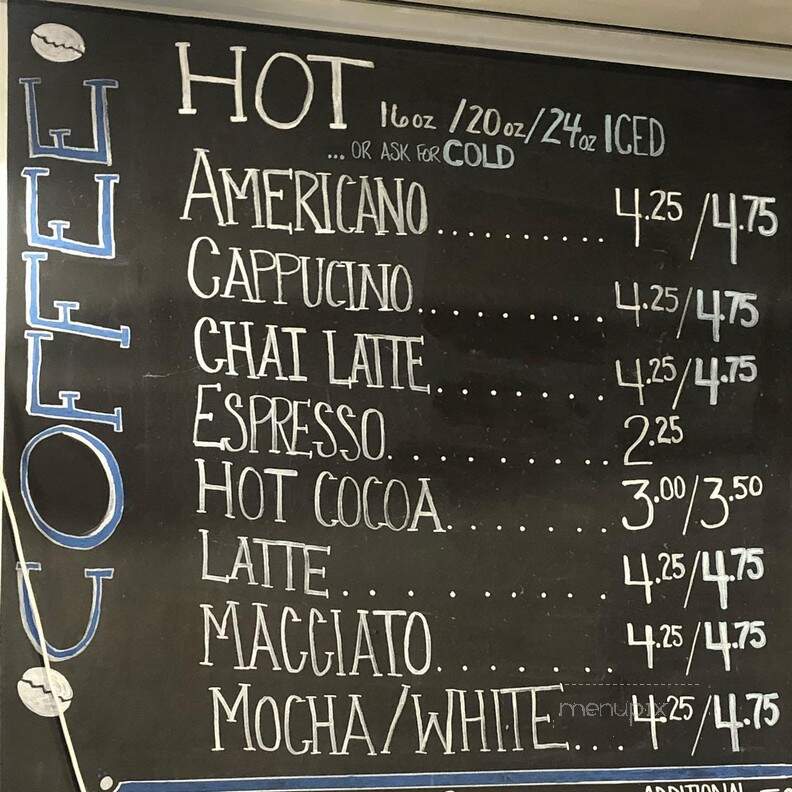 COFFEE
HOT 16oz /20oz/24oz ICED
... OR ASK FOR COLD
AMERICANO.......... 4.25/4.75
CAPPUCINO.......... 4.25/4.75
CHAI LATTE........ 4.25/4.75
ESPRESSO.......... 2.25
HOT COCOA........ 3.00/3.50
LATTE.......... 4.25/4.75
MACCIATO........ 4.25/4.75
MOCHA/WHITE.... 4.25/4.75
menupix
ADDITIONAL